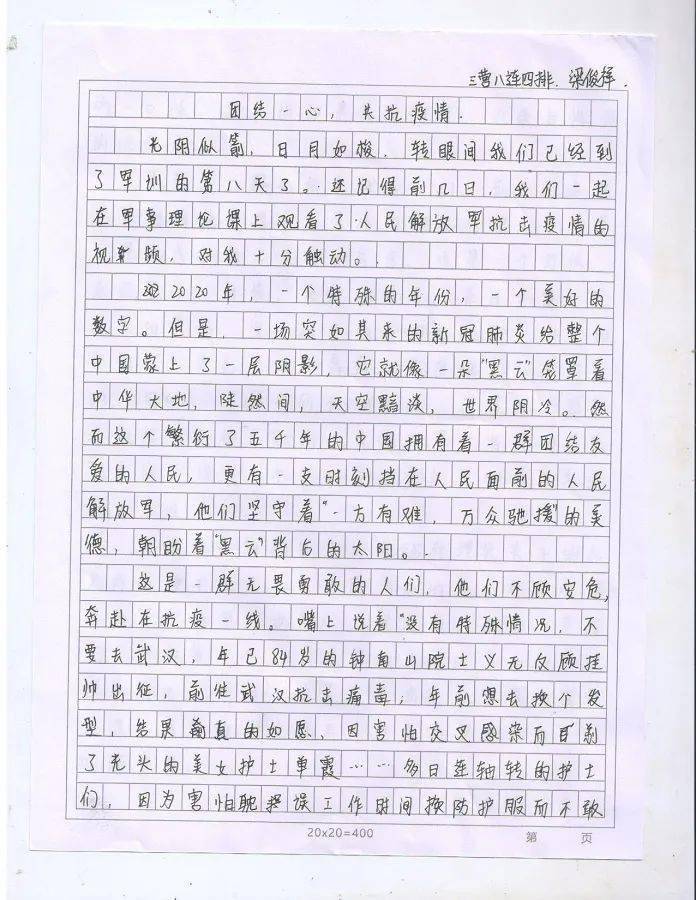 三营八连四排. 梁俊祥.
团结一心，共抗疫情.
光阴似箭，日月如梭，转眼间我们已经到
了军训的第八天了。还记得前几日，我们一起
在军事理论课上观看了人民解放军抗击疫情的
视频，对我十分触动。
2020年，一个特殊的年份，一个美好的
数字。但是，一场突如其来的新冠肺炎给整个
中国蒙上了一层阴影，它就像一朵“黑云”笼罩着
中华大地，陡然间，天空黯淡，世界阴冷。然
而这个繁衍了五千年的中国拥有着一群团结友
爱的人民，更有一支时刻挡在人民面前的人民
解放军，他们坚守着“一方有难，万众驰援”的美
德，朝盼着“黑云”背后的太阳。
这是一群无畏勇敢的人们，他们不顾安危，
奔赴在抗疫一线。嘴上说着“没有特殊情况，不
要去武汉，年已84岁的钟南山院士义无反顾挂
帅出征，前往武汉抗击病毒；年前想去换个发
型，结果真的如愿，因害怕交叉感染而剃
了光头的美女护士单霞……多日连轴转的护士
们，因为害怕耽误工作时间换防护服而不敢
20×20=400
第 页